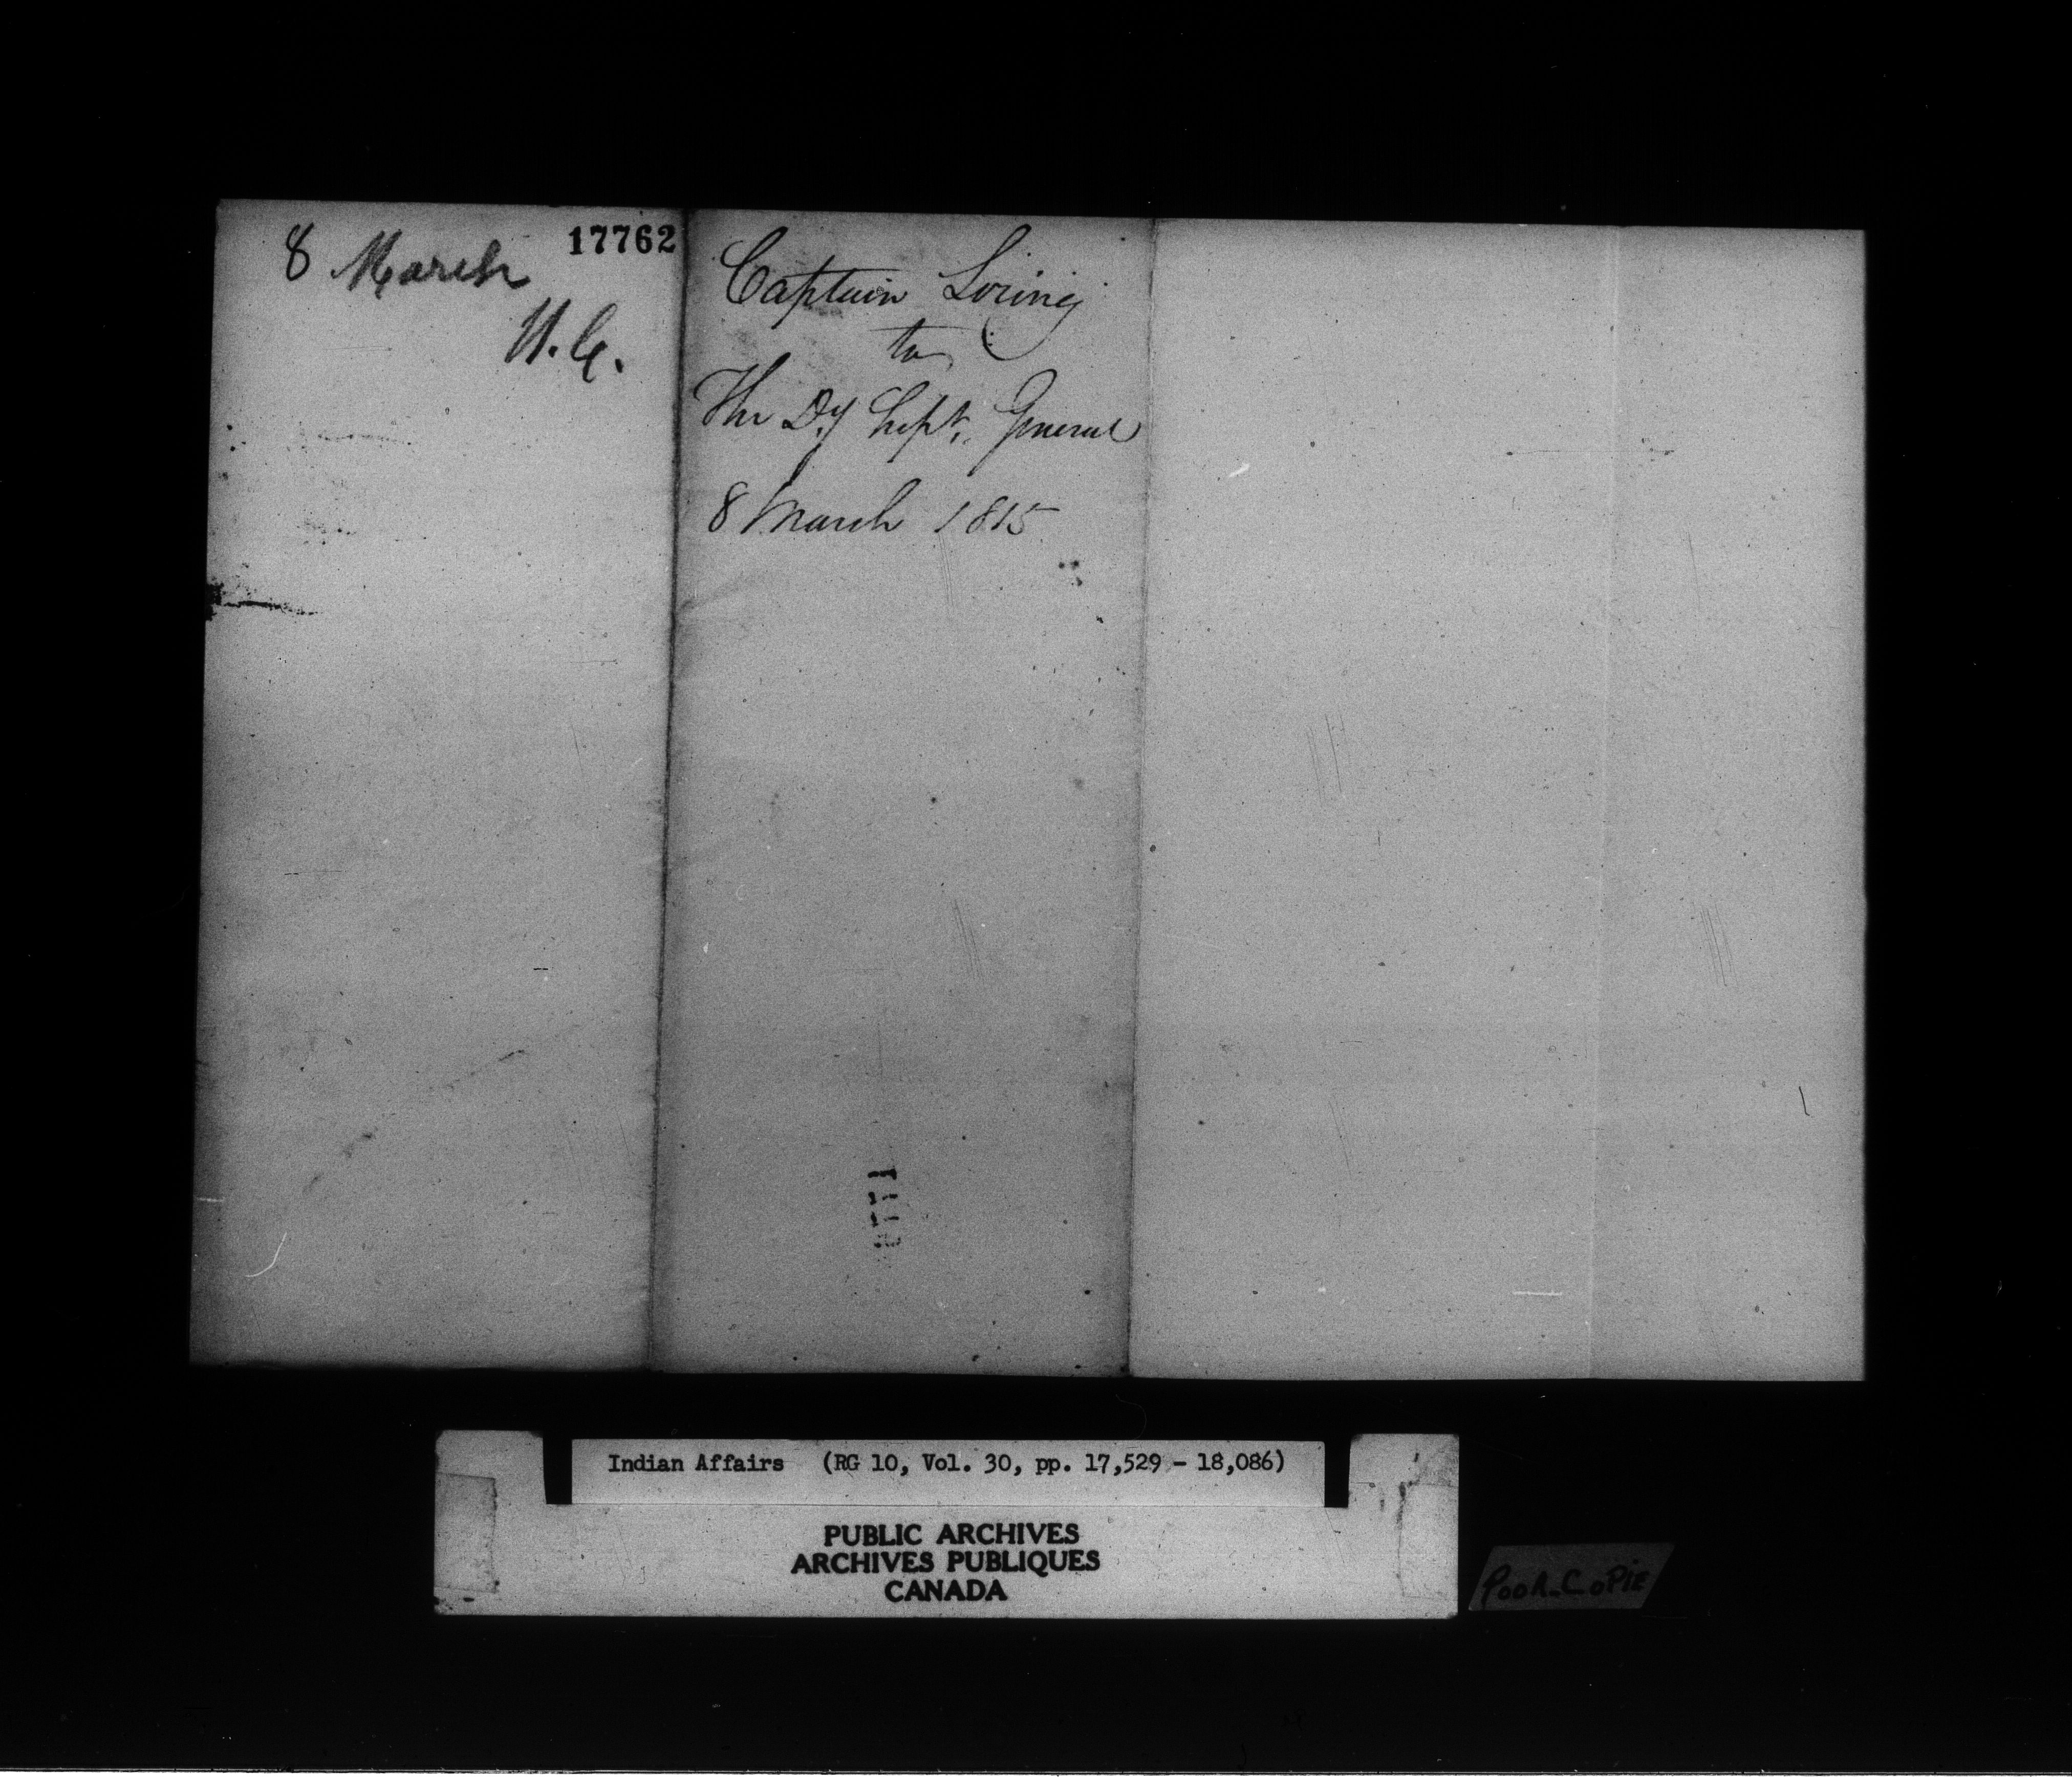 17762
8 March
U.C.
Captain Loring
to
The Dy Supt. General
8 March 1815
Indian Affairs (RG 10, Vol. 30, pp. 17,529 - 18,086)
PUBLIC ARCHIVES
ARCHIVES PUBLIQUES
CANADA
POOR-COPIE